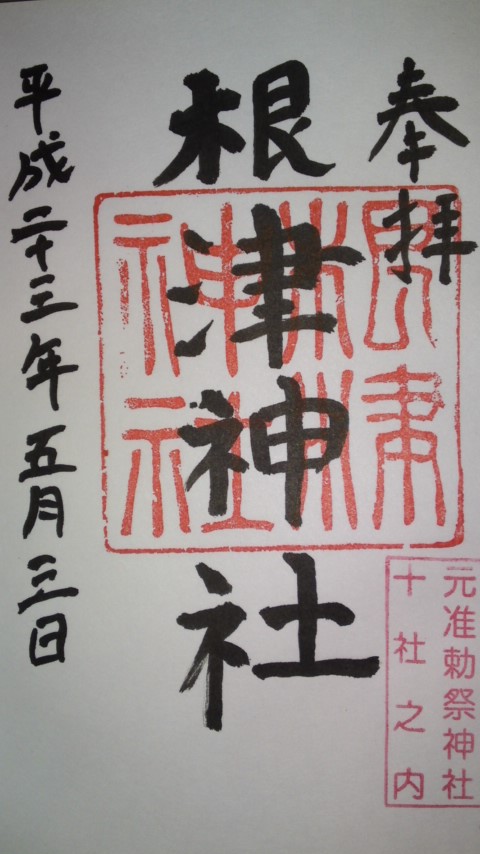 奉拝
根津神社
根津神社
元准勅祭神社
十社之内
平成二十三年五月三日